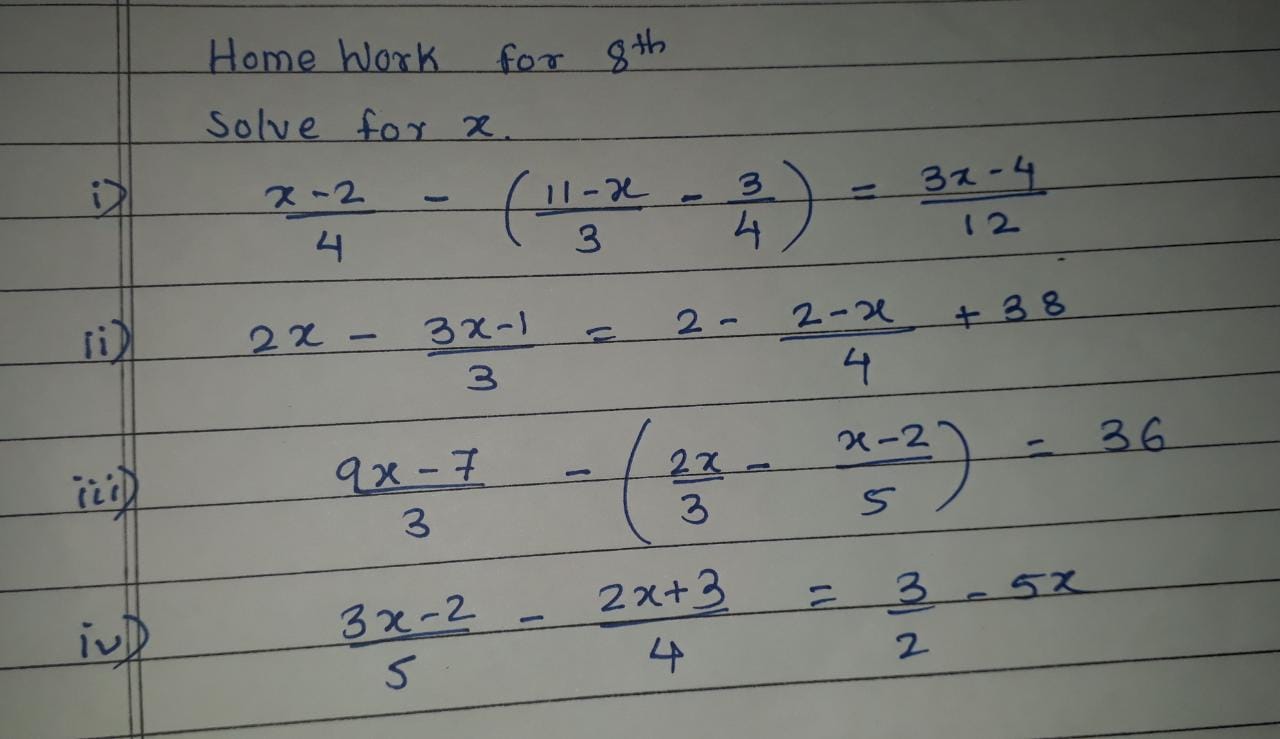 Home Work for 8th
Solve for x.
i) x-2/4 - (11-x/3 - 3/4) = 3x-4/12
ii) 2x - 3x-1/3 = 2 - 2-x/4 + 38
iii) 9x-7/3 - (2x/3 - x-2/5) = 36
iv) 3x-2/5 - 2x+3/4 = 3/2 - 5x